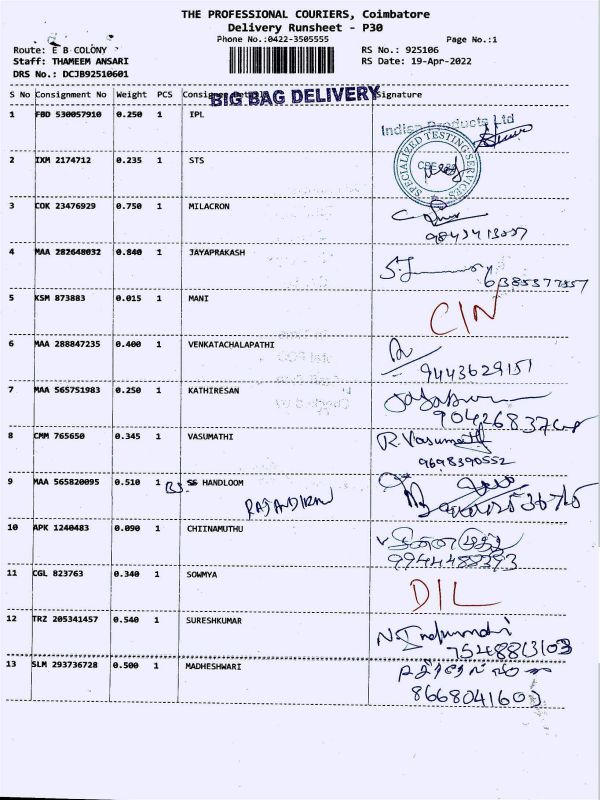 THE PROFESSIONAL COURIERS, Coimbatore
Delivery Runsheet - P30
Phone No.:0422-3505555 Page No.:1
Route: E B COLONY RS No.: 925106
Staff: THAMEEM ANSARI RS Date: 19-Apr-2022
DRS No.: DCJB92510601
S No Consignment No Weight PCS Consignee Details Signature
BIG BAG DELIVERY
1 FBD 530057910 0.250 1 IPL
Indian Products Ltd
2 IXM 2174712 0.235 1 STS
SPECIALIZED TESTING SERVICES
3 COK 23476929 0.750 1 MILACRON
4 MAA 282648032 0.840 1 JAYAPRAKASH
6385377357
5 KSM 873883 0.015 1 MANI CIN
6 MAA 288847235 0.400 1 VENKATACHALAPATHI
9443629151
7 MAA 565751983 0.250 1 KATHIRESAN
90426837
8 CMM 765650 0.345 1 VASUMATHI R. Vasumathi
9698390552
9 MAA 565820095 0.510 1 SS HANDLOOM
RAJANDIRAN
10 APK 1240483 0.090 1 CHIINAMUTHU
9944483393
11 CGL 823763 0.340 1 SOWMYA DIL
12 TRZ 205341457 0.540 1 SURESHKUMAR N. Indumathi
7548813103
13 SLM 293736728 0.500 1 MADHESHWARI
8668041602